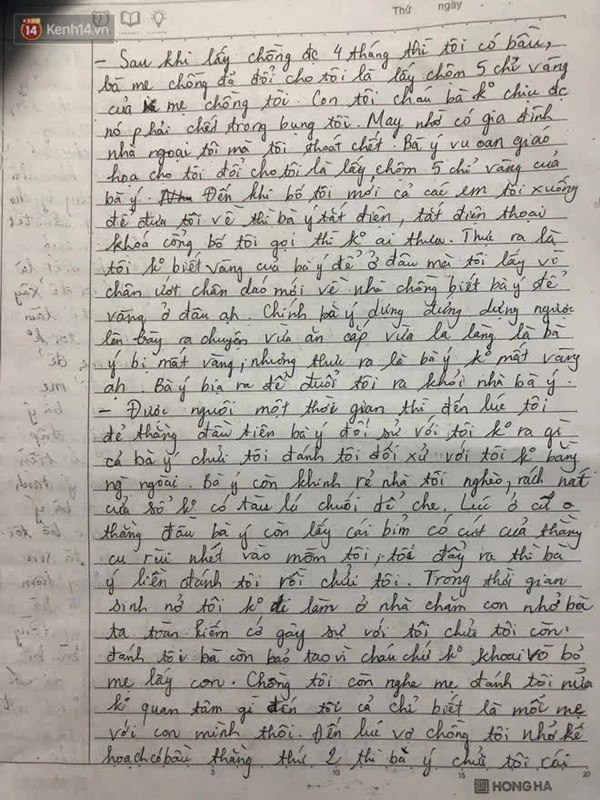 14 Kenh14.vn
Thứ ngày
- Sau khi lấy chồng đc 4 tháng thì tôi có bầu,
bà mẹ chồng đã đổi cho tôi là lấy chôm 5 chỉ vàng
của mẹ chồng tôi. Con tôi cháu bà k° chịu đc
nó phải chết trong bụng tôi. May nhờ có gia đình
nhà ngoại tôi mà tôi thoát chết. Bà ý vu oan giao
họa cho tôi đổi cho tôi là lấy chôm 5 chỉ vàng của
bà ý. Đến khi bố tôi mới cả các em tôi xuống
để đưa tôi về thì bà ý tắt điện, tắt điện thoại
khoá cổng bố tôi gọi thì k° ai thưa. Thực ra là
tôi k° biết vàng của bà ý để ở đâu mà tôi lấy về
chân ướt chân dao mới về nhà chồng biết bà ý để
vàng ở đâu ạh. Chính bà ý dựng đứng dựng ngược
lên bày ra chuyện vừa ăn cắp vừa la làng là bà
ý bị mất vàng, nhưng thực ra là bà ý k° mất vàng
ạh. Bà ý bịa ra để đuổi tôi ra khỏi nhà bà ý.
- Được người một thời gian thì đến lúc tôi
đẻ thằng đầu tiên bà ý đối sử với tôi k° ra gì
cả bà ý chửi tôi đánh tôi đối xử với tôi k° bằng
ng ngoài. Bà ý còn khinh rẻ nhà tôi nghèo, rách nát
cửa sổ k° có tàu lá chuối để che. Lúc ở cữ
tháng đầu bà ý còn lấy cái bỉm có cứt của thằng
cu rùi nhét vào mồm tôi, tôi đẩy ra thì bà
ý liền đánh tôi rồi chửi tôi. Trong thời gian
sinh nở tôi k° đi làm ở nhà chăm con nhờ bà
ta toàn kiếm cớ gây sự với tôi chửi tôi còn
đánh tôi bà còn bảo tao vì cháu chứ k° khoai vỡ bỏ
mẹ lấy con. Chồng tôi còn nghe mẹ đánh tôi nữa
k° quan tâm gì đến tôi cả chỉ biết là mỗi mẹ
với con mình thôi. Đến lúc vợ chồng tôi nhỡ kế
hoạch có bầu thằng thứ 2 thì bà ý chửi tôi cái
5 10 15 20
HONG HA